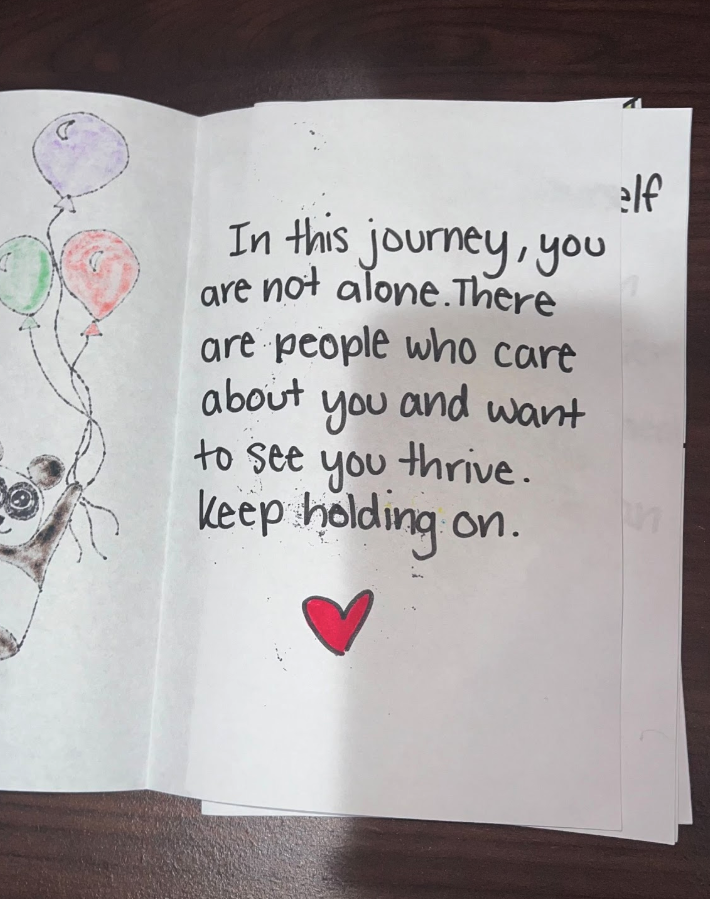 In this journey, you
are not alone. There
are people who care
about you and want
to see you thrive.
Keep holding on.
elf